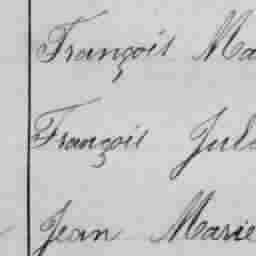 François Ma
François Jule
Jean Marie